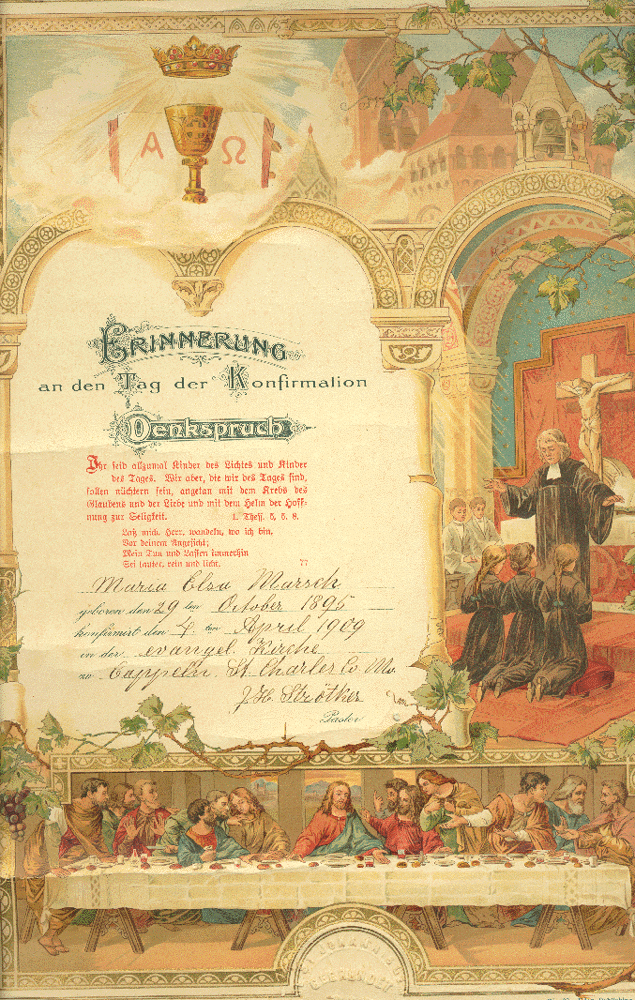 A Ω
ERINNERUNG
an den Tag der Konfirmation
Denkspruch
Ihr seid allzumal Kinder des Lichtes und Kinder
des Tages. Wir aber, die wir des Tages sind,
sollen nüchtern sein, angetan mit dem Krebs des
Glaubens und der Liebe und mit dem Helm der Hoff-
nung zur Seligkeit. 1. Thess. 5, 5. 8.
Laß mich, Herr, wandeln, wo ich bin,
Vor deinem Angesicht;
Mein Tun und Lassen immerhin
Sei lauter, rein und licht.
77
Maria Elsa Marsch
geboren den 29 ten October 1895
konfirmiert den 4 ten April 1909
in der evangel. Kirche
zu Cappeln, St. Charles Co. Mo.
J. H. Strötker
Pastor